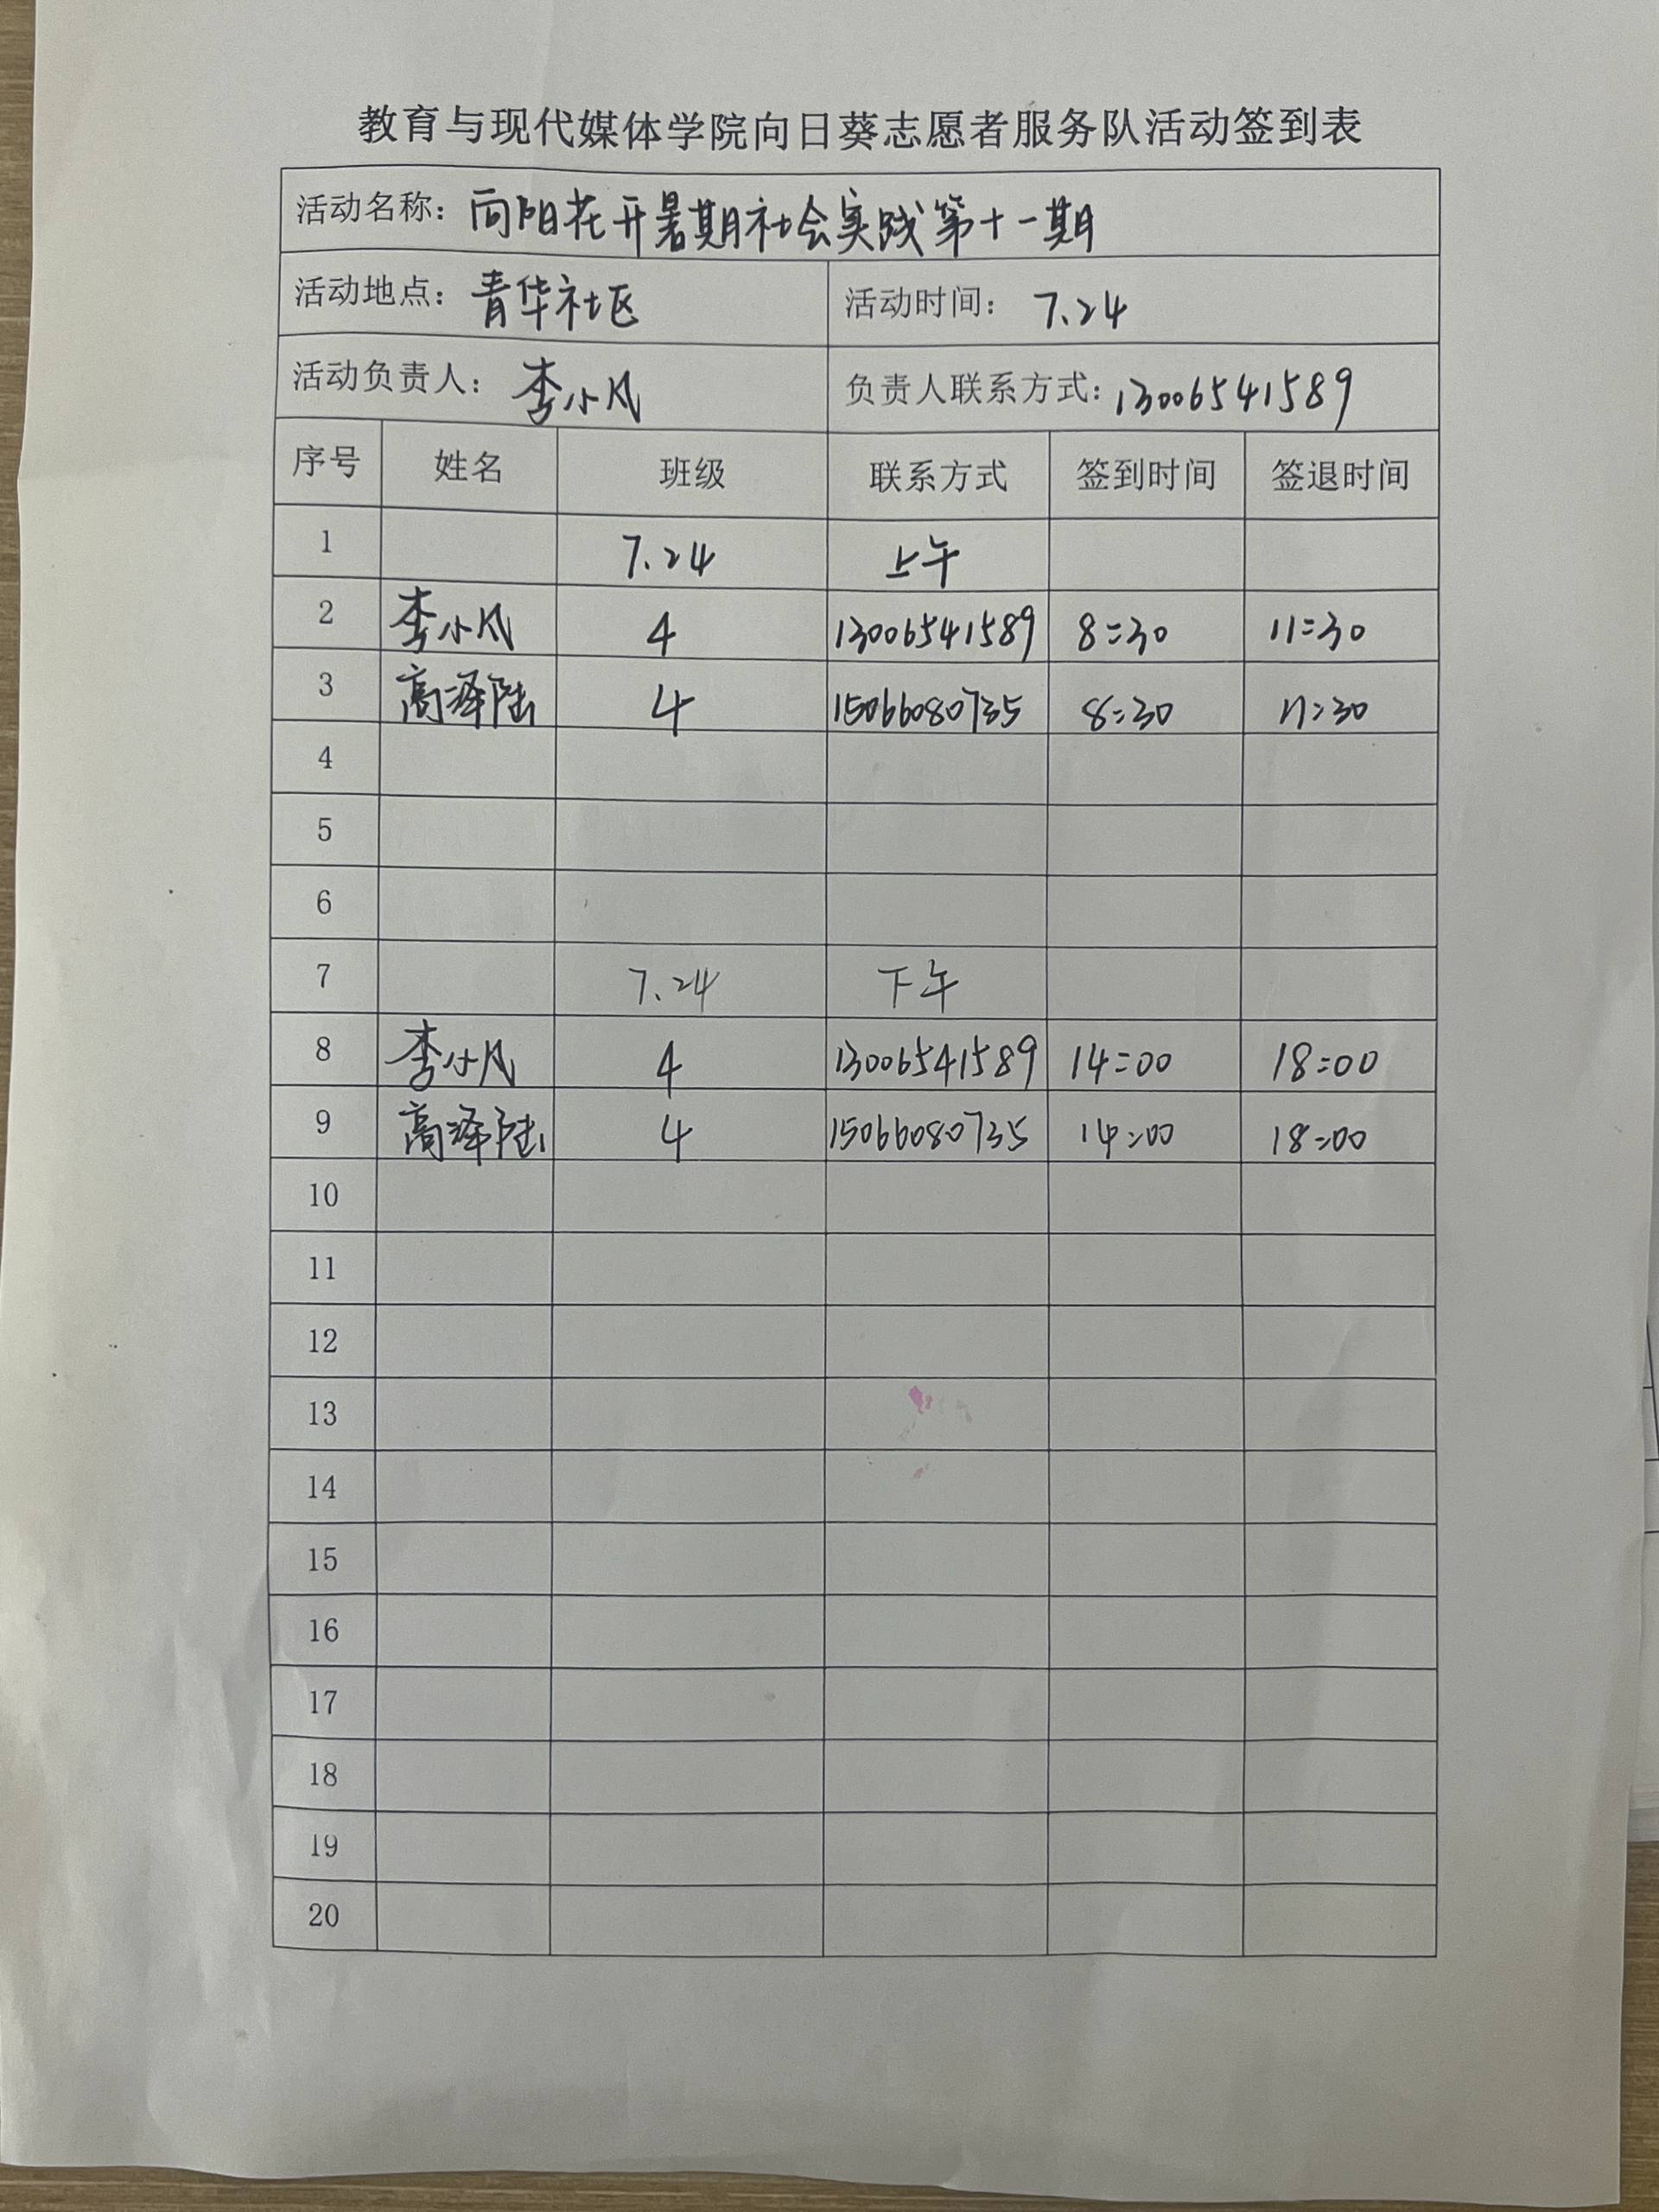 教育与现代媒体学院向日葵志愿者服务队活动签到表
活动名称：向阳花开暑期社会实践第十一期
活动地点：青华社区 活动时间：7.24
活动负责人：李小风 负责人联系方式：13006541589
序号 姓名 班级 联系方式 签到时间 签退时间
1 7.24 上午
2 李小风 4 13006541589 8:30 11:30
3 高泽陆 4 15066080735 8:30 11:30
4
5
6
7 7.24 下午
8 李小风 4 13006541589 14:00 18:00
9 高泽陆 4 15066080735 14:00 18:00
10
11
12
13
14
15
16
17
18
19
20